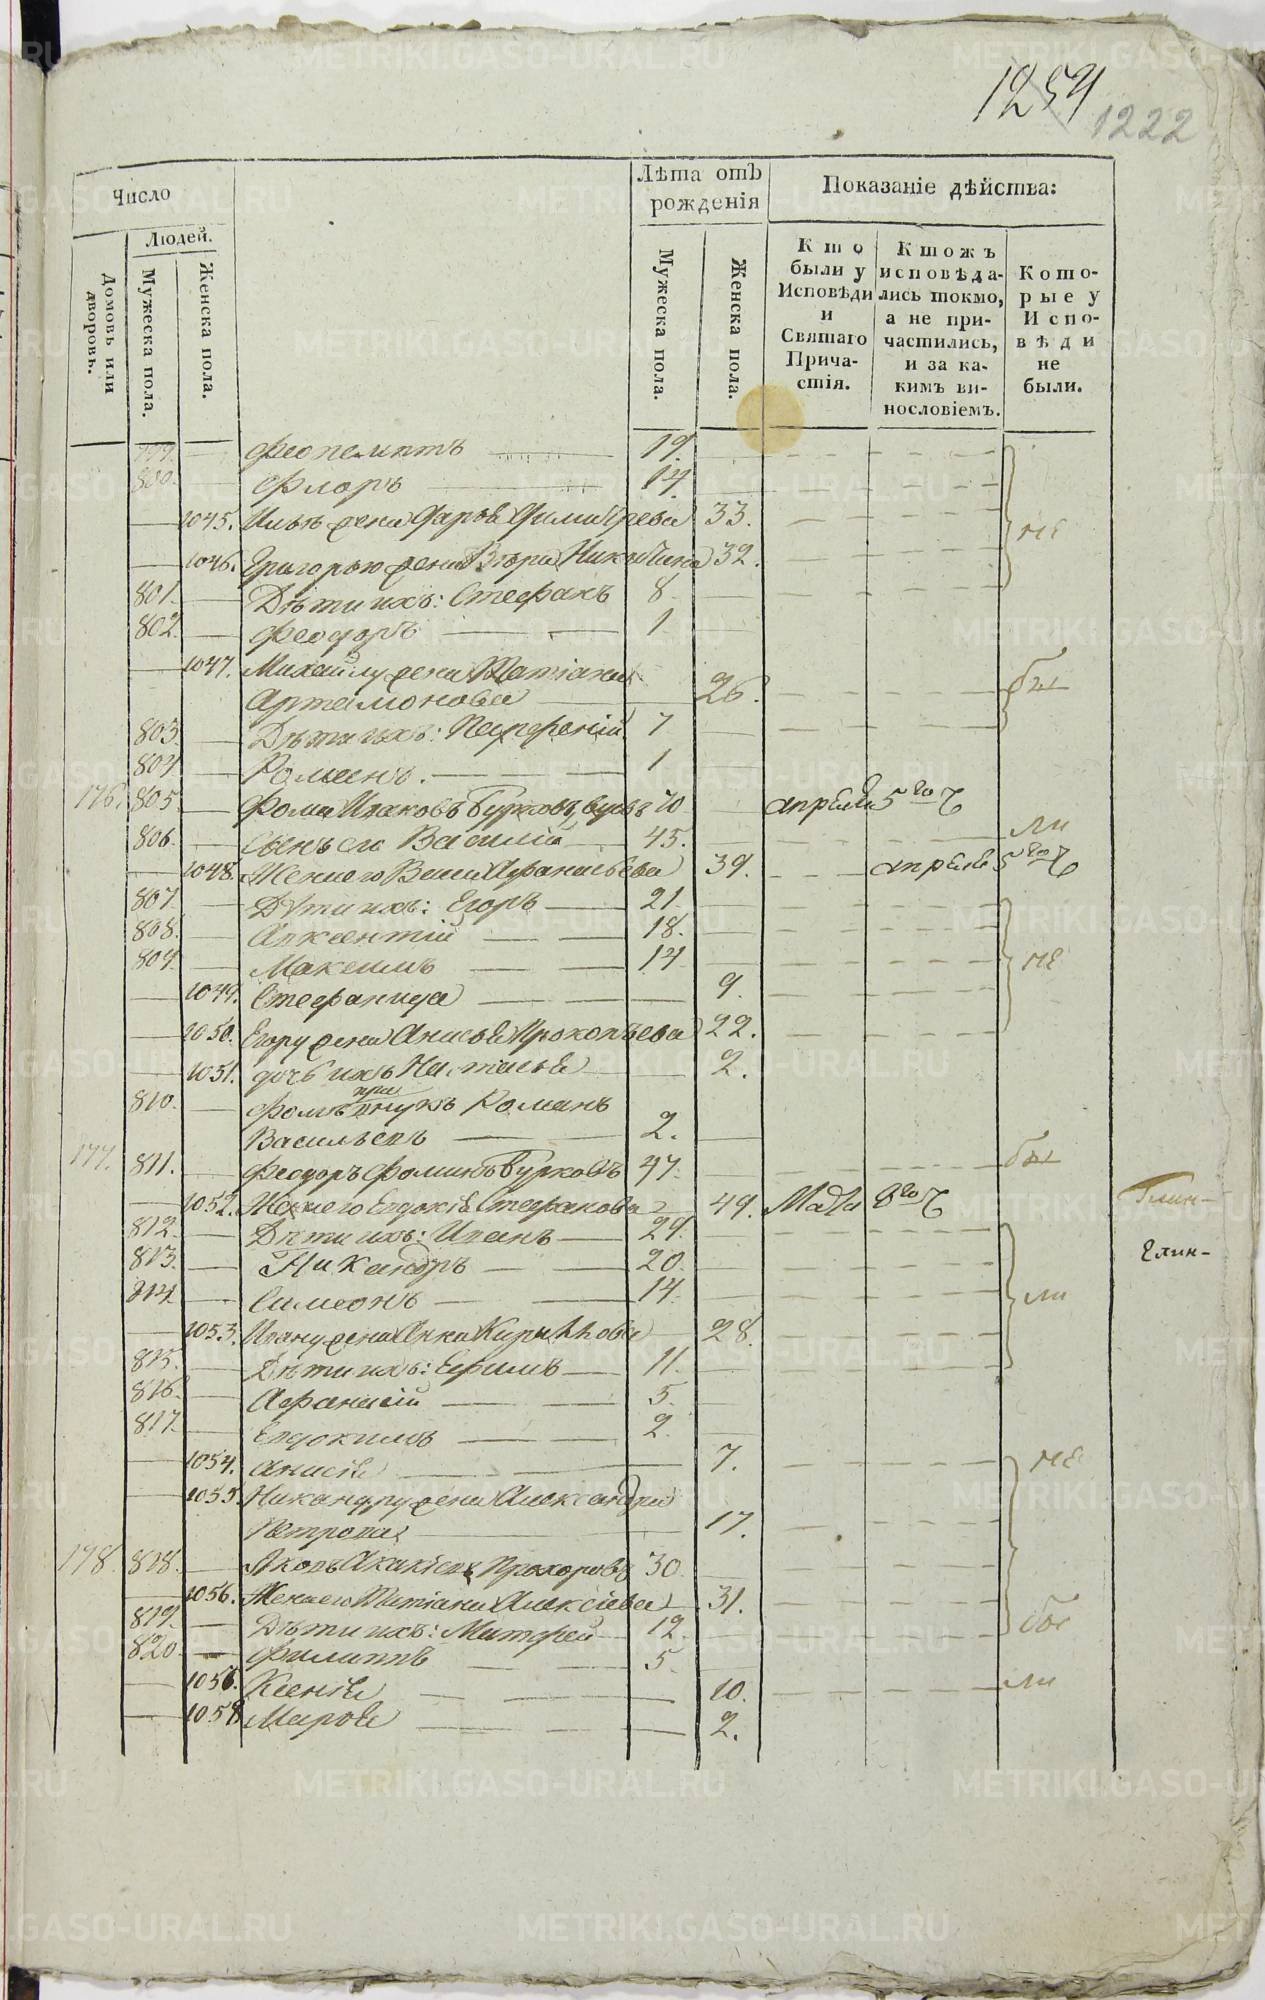 1254
1222
Число
Людей.
Домовъ или дворовъ.
Мужеска пола.
Женска пола.
Лѣта отъ рожденія
Мужеска пола.
Женска пола.
Показаніе дѣйства:
Кто были у Исповѣди и Святаго Причастія.
Ктожъ исповѣдались токмо, а не причастились, и за какимъ винословіемъ.
Которые у Исповѣди не были.
799. Феопемптъ 19.
800. Флоръ 14.
1045. жена Дарья Димитрева 33.
1046. Григорью жена Никитина 32.
не
801. Дѣти ихъ: Стефанъ 8.
802. Феодоръ 1
1047. Михайлу жена Татіана
Артамонова 26.
бы
803. Дѣти ихъ: Парфеній 7
804 Романъ. 1
176. 805 Фома Бурковъ, вдовъ 70 апрѣля 5го ч
806. сынъ его Василій 45.
ли
1048. Жена его Афанасьева 39. апрѣля 5го ч
807. Дѣти ихъ: Егоръ 21.
808. Авксентій 18.
809. Максимъ 14
не
1049. Стефанида 9.
1050. Егору жена Анисья Прокопьева 22.
1051. дочь ихъ Наталья 2.
810. Фомѣ внукъ Романъ
Васильевъ 2.
177. 811. Феодоръ Фоминъ Бурковъ 47.
бы
1052. Жена его Евдокія Стефанова 49. Маія 8го ч
Глин-
812. Дѣти ихъ: Иванъ 29.
813. Никандръ 20.
Глин-
814 Симеонъ 14
ли
1053. Ивану жена Анна Кирилова 28.
815. Дѣти ихъ: Ефимъ 11.
816. Афанасій 5.
817. Евдокимъ 2.
1054. Анисія 7.
не
1055. Никандру жена Александра
Петрова 17.
178. 818. Яковъ Прохоровъ 30.
1056. Жена его Татіана Алексѣева 31.
819. Дѣти ихъ: Матфей 12.
820. Филиппъ 5.
1056. Ксенія 10.
ли
1058 Марья 2.